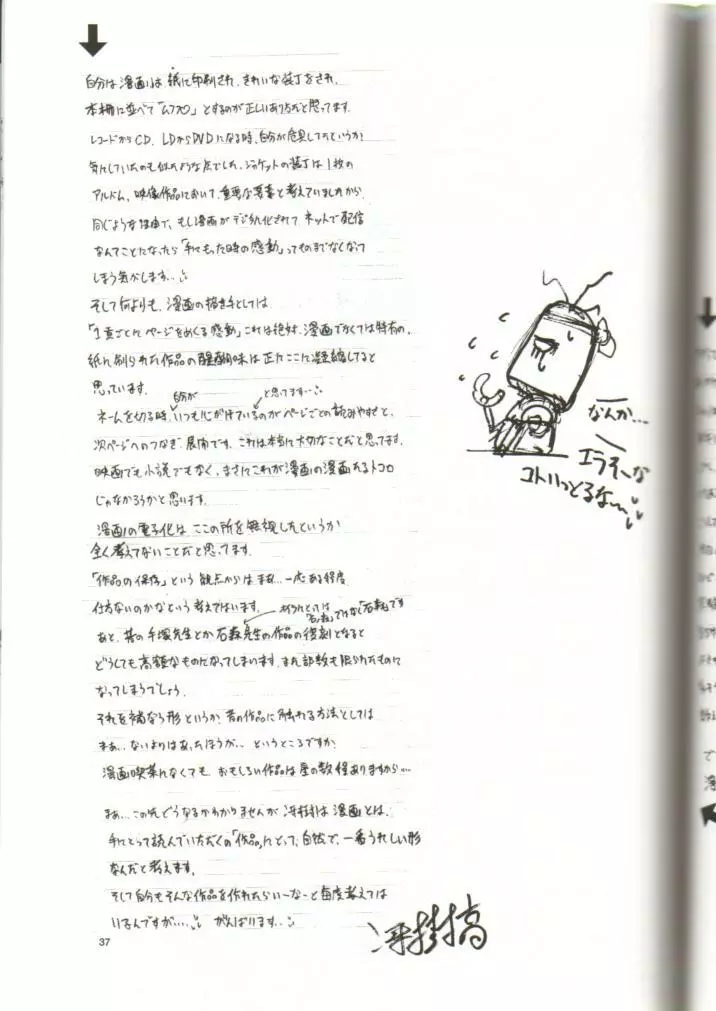 自分は漫画は紙に印刷され、きれいな装丁をされ、
本棚に並べて「ムフフ」とするのが正しいあり方だと思ってます。
レコードからCD、LDからDVDになる時、自分が危具してたというか
気にしていたのも似たような点でした。ジャケットの装丁は1枚の
アルバム、映像作品において、重要な要素と考えていましたから
同じような理由で、もし漫画がデジタル化されて ネットで配信
なんてことになったら「手にもった時の感動」ってものまでなくなって
しまう気がします…
そして何よりも、漫画の描き手としては
「1頁ごとにページをめくる感動」これは絶対、漫画でなくては特有の、
紙に刷られた作品の醍醐味は正にここに凝縮してると
思っています。
自分が
と思てます…
ネームを切る時、いつも心が けているのがページごとの読みやすさと、
次ページへのつなぎ、展開です。これは本当に大切なことだと思ってます。
映画でも小説でもなく、まさにこれが漫画の漫画たるトコロ
じゃなかろうかと思います。
漫画の電子化は、ここの所を無視したというか
全く考えてないことだと思ってます。
「作品の保存」という観点からはまあ…一応ある程度
仕方ないのかなという考えではいます。
あと、昔の手塚先生とか石森先生の作品の復刻となると
どうしても高額なものになってしまいます。また部数も限られたものに
なってしまうでしょう。
それを補なう形というか、昔の作品に触れる方法としては
まあ…ないよりはあったほうが… というところですか?
漫画喫茶になくても おもしろい作品は星の数程ありますから…
まあ…この先どうなるかわかりませんが 冴樹は漫画とは、
手にとって読んでいただくの「作品」にとって、自然で、一番うれしい形
なんだと考えます。
そして自分もそんな作品を作れたらいーなーと毎度考えては
いるんですが…… がんばります…
なんか…
エラそーな
コトいっとるな〜
冴樹高
37